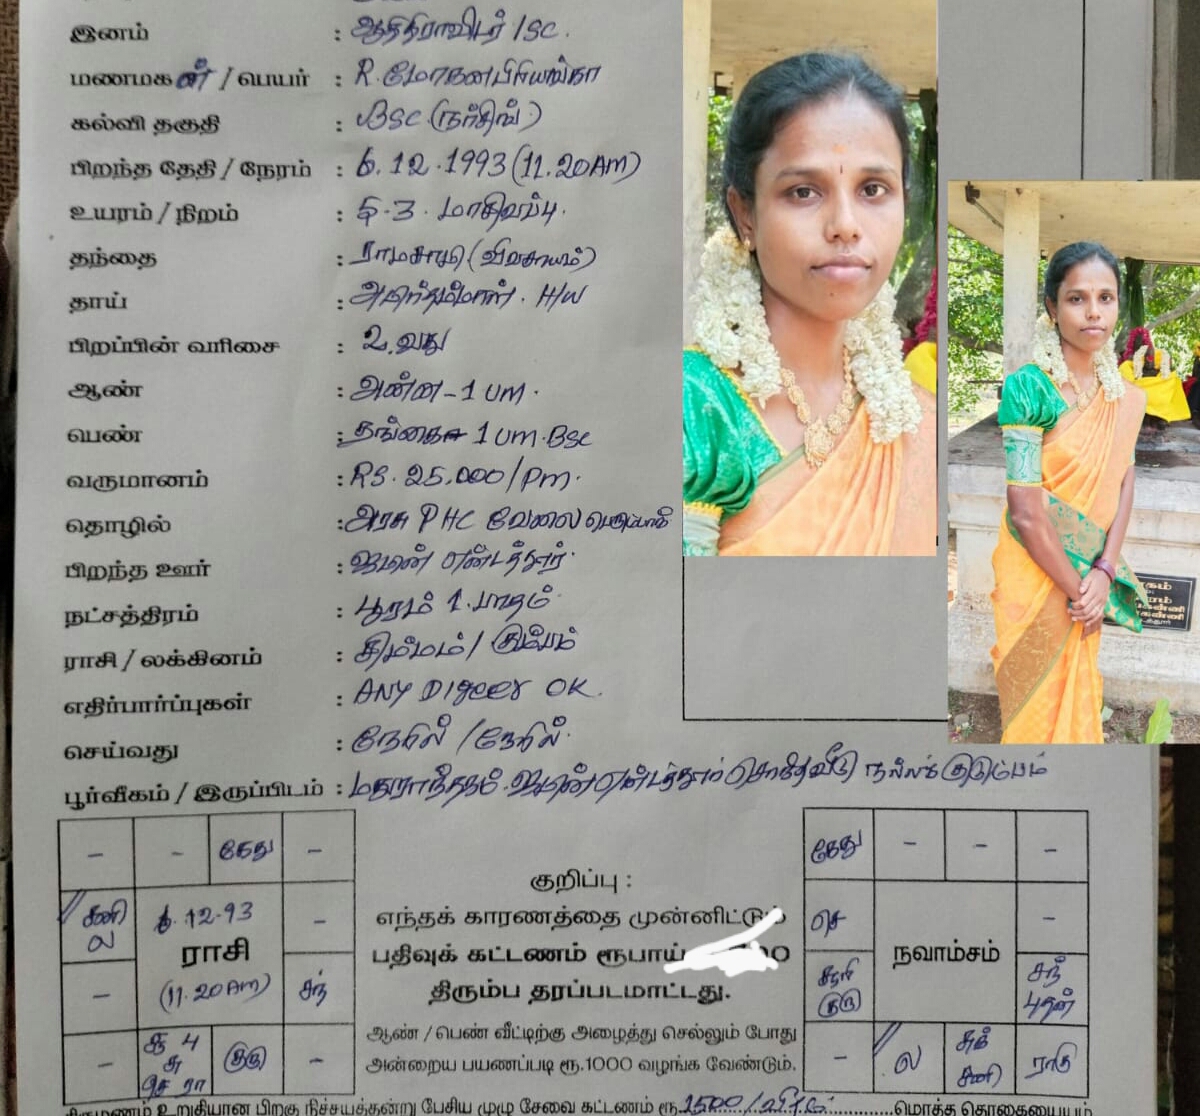 இனம் : ஆதிதிராவிடர் / SC.
மணமகள் / பெயர் : R. மோகனபிரியங்கா
கல்வி தகுதி : BSC (நர்சிங்)
பிறந்த தேதி / நேரம் : 6.12.1993 (11.20AM)
உயரம் / நிறம் : 5.3. மாநிறப்பு.
தந்தை : ராமசாமி (விவசாயம்)
தாய் : H/W
பிறப்பின் வரிசை : 2.வது
ஆண் : அண்ண - 1 um.
பெண் : தங்கை 1 um. BSC
வருமானம் : RS. 25.000/Pm.
தொழில் : அரசு PHC வேலை
பிறந்த ஊர் : ஜமீன் எண்டத்தூர்.
நட்சத்திரம் : பூரம் 1. பாதம்.
ராசி / லக்கினம் : சிம்மம் / கும்பம்
எதிர்பார்ப்புகள் : ANY Digeer OK.
செய்வது : நேரில் / நேரில்.
பூர்வீகம் / இருப்பிடம் : மதுராந்தகம். ஜமீன் எண்டத்தூர் சொந்தவீடு நல்ல குடும்பம்
- - கேது -
சனி ல
6.12.93
ராசி
(11.20AM)
-
- சந்
- ஆ 4 சு செ ரா குரு -
குறிப்பு :
எந்தக் காரணத்தை முன்னிட்டும்
பதிவுக் கட்டணம் ரூபாய்
திரும்ப தரப்படமாட்டது.
ஆண் / பெண் வீட்டிற்கு அழைத்து செல்லும் போது
அன்றைய பயணப்படி ரூ.1000 வழங்க வேண்டும்.
கேது - - -
செ -
நவாம்சம்
சனி குரு
சந் புதன்
- ல சுக் சனி ராகு
திருமணம் உறுதியான பிறகு நிச்சயத்தன்று பேசிய முழு சேவை கட்டணம் ரூ. 1500 / ...... மொத்த தொகையையும்